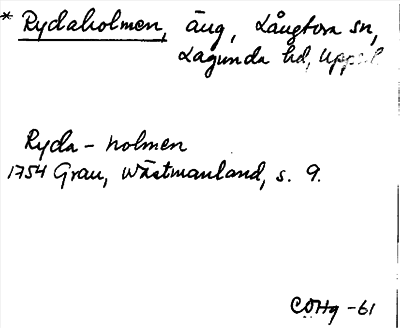 * Rydaholmen, äng, Långtora sn,
Lagunda hd, Uppsl.
Ryda - holmen
1754 Grau, Wästmanland, s. 9.
CÖHg -61